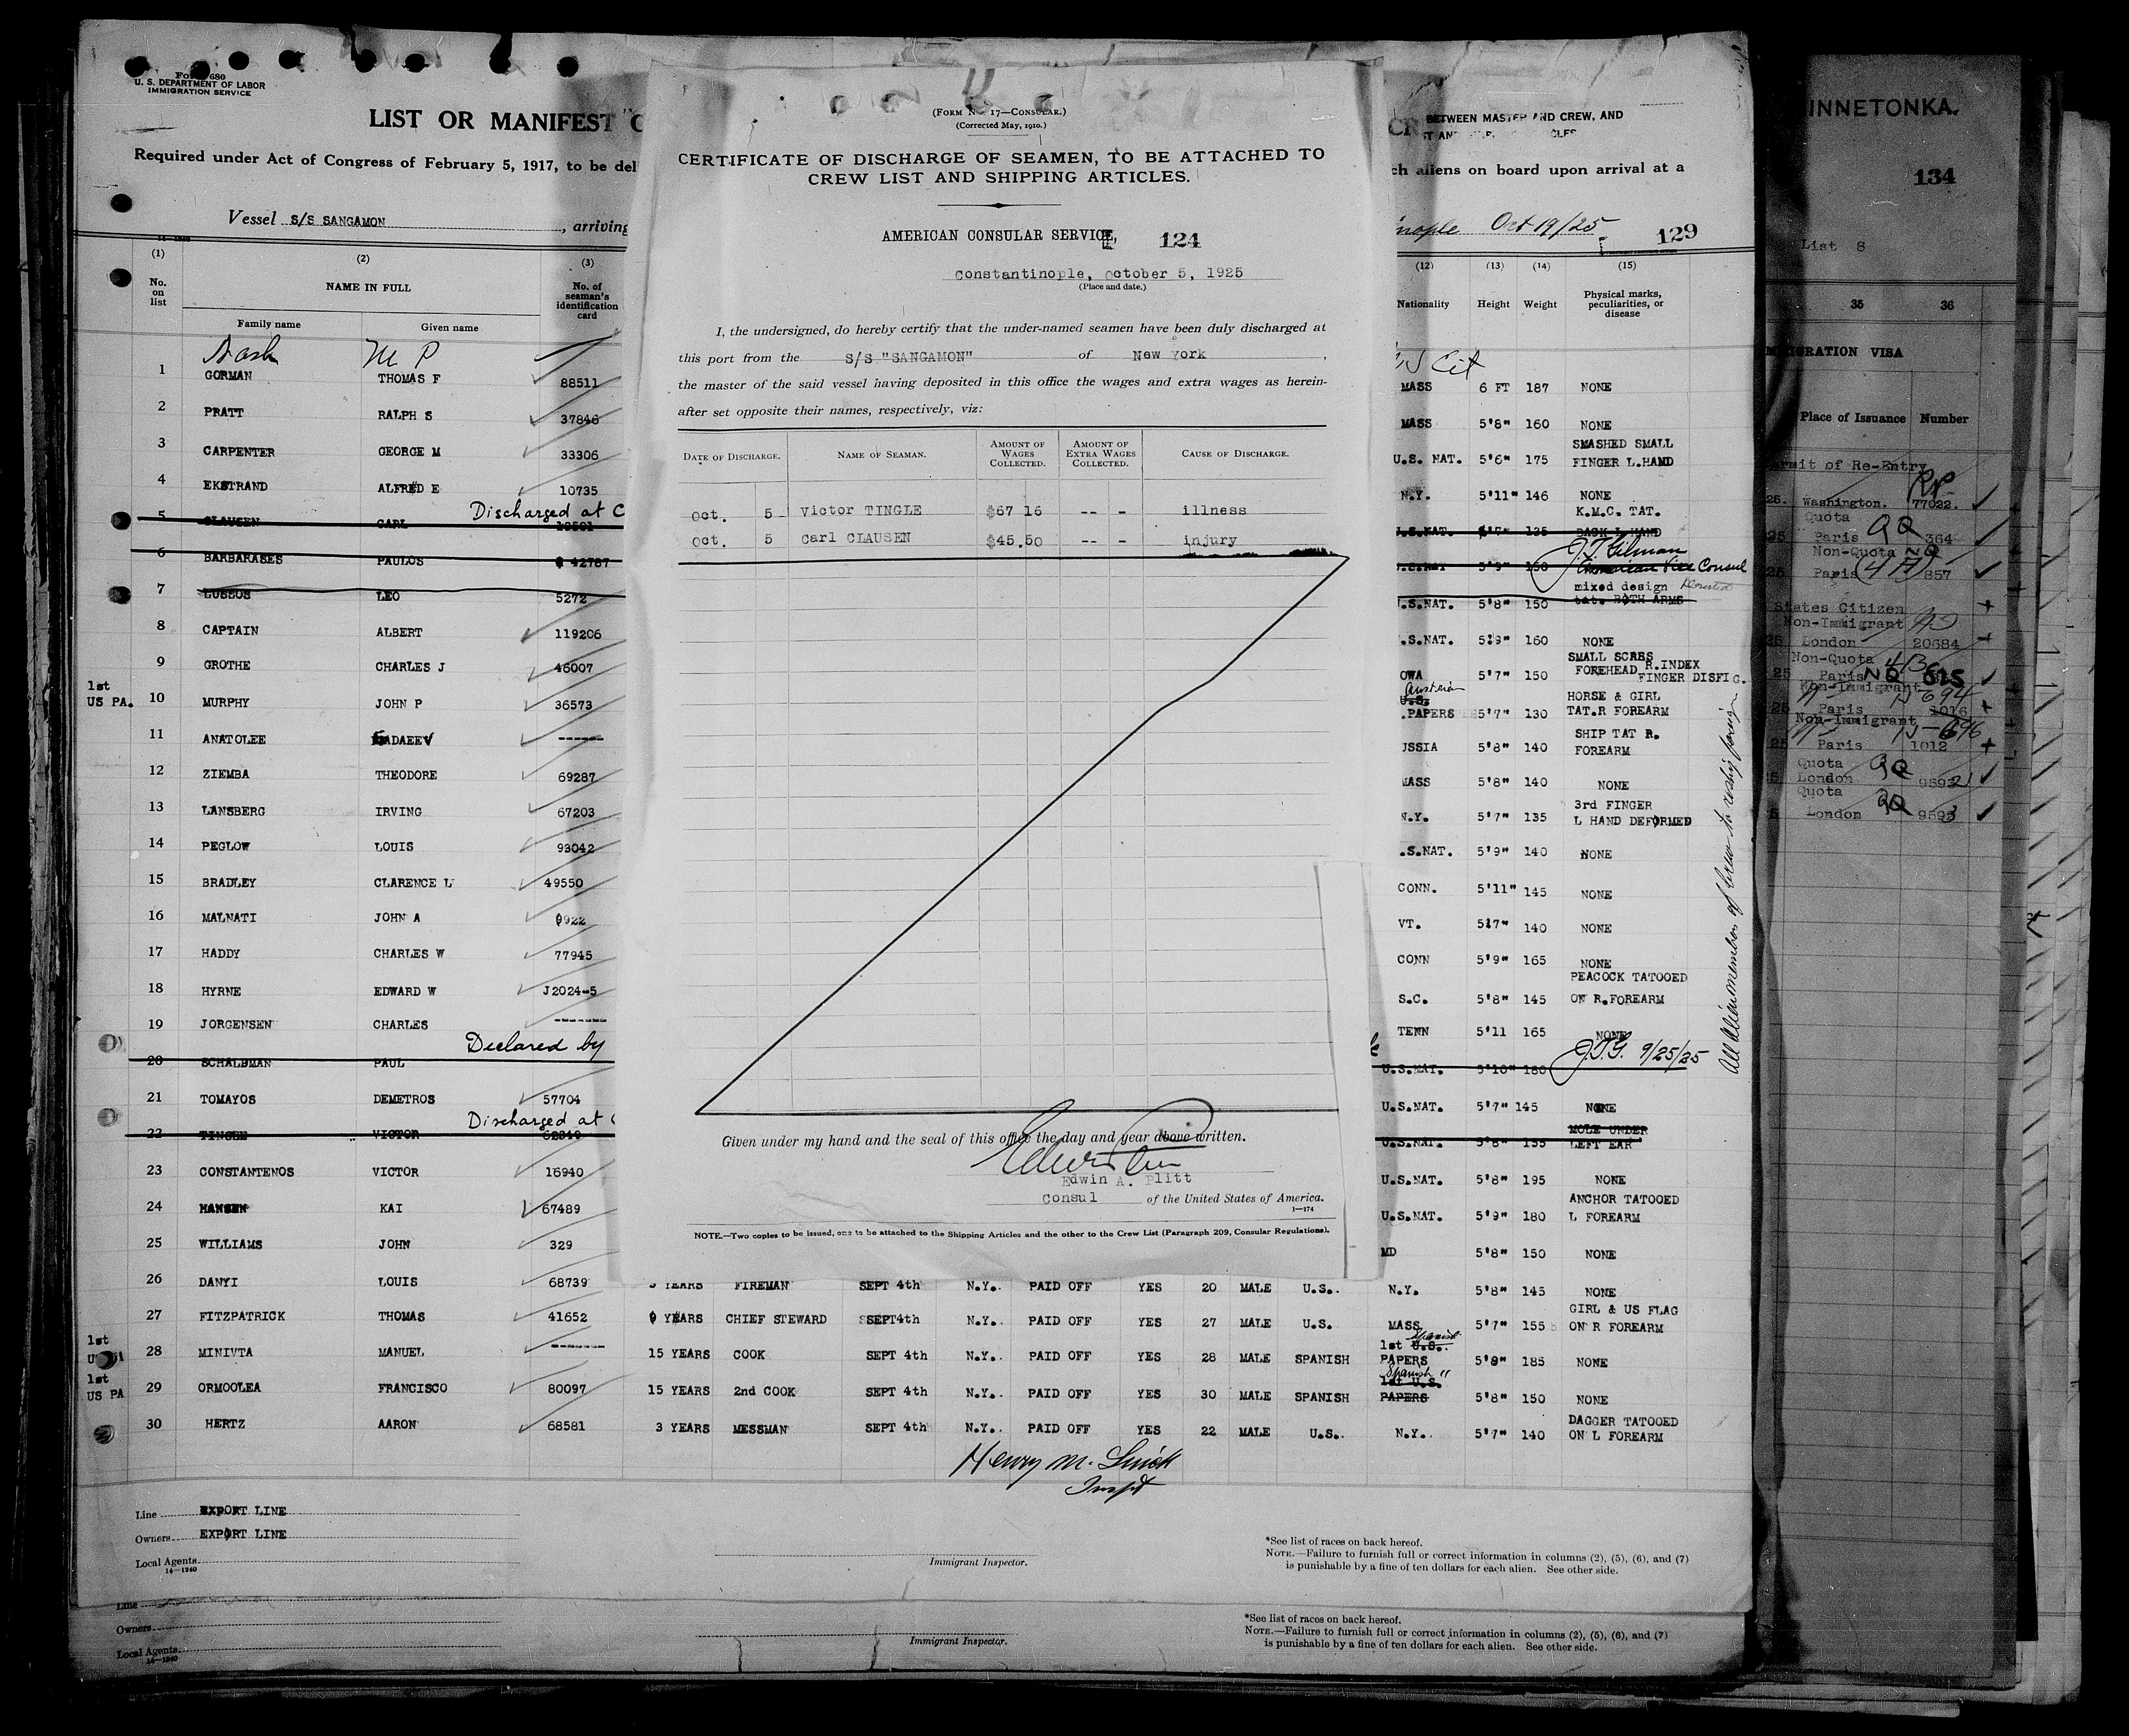 Form 680
U. S. DEPARTMENT OF LABOR
IMMIGRATION SERVICE
LIST OR MANIFEST
Required under Act of Congress of February 5, 1917, to be del
Vessel S/S SANGAMON, arriving
(1) (2) (3)
No. on list
NAME IN FULL
No. of seaman's identification card
Family name Given name
Nash M P
1 GORMAN THOMAS F 88511
2 PRATT RALPH S 37846
3 CARPENTER GEORGE M 33306
4 EKSTRAND ALFRED E 10735
Discharged at C
5 CLAUSEN CARL
6 BARBARASES PAULOS 42787
7 LUSSOS LEO 5272
8 CAPTAIN ALBERT 119206
9 GROTHE CHARLES J 46007
1st
US PA. 10 MURPHY JOHN P 36573
11 ANATOLEE ------
12 ZIEMBA THEODORE 69287
13 LANSBERG IRVING 67203
14 PEGLOW LOUIS 93042
15 BRADLEY CLARENCE L 49550
16 MALNATI JOHN A 9922
17 HADDY CHARLES W 77945
18 HYRNE EDWARD W J2024-5
19 JORGENSEN CHARLES ------
Declared by
20 SCHALDMAN PAUL
21 TOMAYOS DEMETROS 57704
Discharged at
22 TINGLE VICTOR
23 CONSTANTENOS VICTOR 16940
24 HANSEN KAI 67489
25 WILLIAMS JOHN 329
26 DANYI LOUIS 68739
27 FITZPATRICK THOMAS 41652
1st
28 MINIVTA MANUEL ------
1st
US PA 29 ORMOOLEA FRANCISCO 80097
30 HERTZ AARON 68581
(Form No. 17—Consular.)
(Corrected May, 1910.)
CERTIFICATE OF DISCHARGE OF SEAMEN, TO BE ATTACHED TO
CREW LIST AND SHIPPING ARTICLES.
AMERICAN CONSULAR SERVICE, 124
Constantinople, October 5, 1925
(Place and date.)
I, the undersigned, do hereby certify that the under-named seamen have been duly discharged at
this port from the S/S "SANGAMON" of New York,
the master of the said vessel having deposited in this office the wages and extra wages as herein-
after set opposite their names, respectively, viz:
DATE OF DISCHARGE. NAME OF SEAMAN. AMOUNT OF WAGES COLLECTED. AMOUNT OF EXTRA WAGES COLLECTED. CAUSE OF DISCHARGE.
Oct. 5 Victor TINGLE $67 16 -- - illness
Oct. 5 Carl CLAUSEN $45.50 -- - injury
Given under my hand and the seal of this office the day and year above written.
Edwin A. Plitt
Consul of the United States of America.
1—174
NOTE.—Two copies to be issued, one to be attached to the Shipping Articles and the other to the Crew List (Paragraph 209, Consular Regulations).
BETWEEN MASTER AND CREW, AND
ch aliens on board upon arrival at a
nople Oct 19/25 129
(12) (13) (14) (15)
Nationality Height Weight Physical marks, peculiarities, or disease
U S Cit
MASS 6 FT 187 NONE
MASS 5'8" 160 NONE
U.S. NAT. 5'6" 175 SMASHED SMALL FINGER L.HAND
N.Y. 5'11" 146 NONE
U.S.NAT. 5'7" 135 K.M.C. TAT. BACK L HAND
J.T. Gilman
American Vice Consul
U.S.NAT 5'9" 150
U.S.NAT. 5'8" 150 mixed design tat. BOTH ARMS
.S.NAT. 5'9" 160 NONE
OWA 5'7" 150 SMALL SCARS FOREHEAD R.INDEX FINGER DISFIG.
Austrian
U.S.
.PAPERS 5'7" 130 HORSE & GIRL TAT.R FOREARM
USSIA 5'8" 140 SHIP TAT R. FOREARM
MASS 5'8" 140 NONE
N.Y. 5'7" 135 3rd FINGER L HAND DEFORMED
.S.NAT. 5'9" 140 NONE
CONN. 5'11" 145 NONE
VT. 5'7" 140 NONE
CONN 5'9" 165 NONE
S.C. 5'8" 145 PEACOCK TATOOED ON R.FOREARM
TENN 5'11 165 NONE
J.T.G. 9/25/25
U.S.NAT. 5'10" 180
U.S.NAT. 5'7" 145 NONE
U.S.NAT. 5'8" 155 MOLE UNDER LEFT EAR
U.S.NAT. 5'8" 195 NONE
U.S.NAT. 5'9" 180 ANCHOR TATOOED L FOREARM
MD 5'8" 150 NONE
YEARS FIREMAN SEPT 4th N.Y. PAID OFF YES 20 MALE U.S. N.Y. 5'8" 145 NONE
9 YEARS CHIEF STEWARD SEPT4th N.Y. PAID OFF YES 27 MALE U.S. MASS 5'7" 155 GIRL & US FLAG ON R FOREARM
15 YEARS COOK SEPT 4th N.Y. PAID OFF YES 28 MALE SPANISH Spanish 1st U.S. PAPERS 5'9" 185 NONE
15 YEARS 2nd COOK SEPT 4th N.Y. PAID OFF YES 30 MALE SPANISH Spanish " 1st U.S. PAPERS 5'8" 150 NONE
3 YEARS MESSMAN SEPT 4th N.Y. PAID OFF YES 22 MALE U.S. N.Y. 5'7" 140 DAGGER TATOOED ON L FOREARM
All alien members of crew to reship foreign
Henry M.
Inspt
Line EXPORT LINE
Owners EXPORT LINE
Local Agents
14—1240
Immigrant Inspector.
*See list of races on back hereof.
NOTE.—Failure to furnish full or correct information in columns (2), (5), (6), and (7)
is punishable by a fine of ten dollars for each alien. See other side.
Line
Owners
Local Agents
14—1240
Immigrant Inspector.
*See list of races on back hereof.
NOTE.—Failure to furnish full or correct information in columns (2), (5), (6), and (7)
is punishable by a fine of ten dollars for each alien. See other side.
INNETONKA.
134
List 8
35 36
IGRATION VISA
Place of Issuance Number
ermit of Re-Entry
25. Washington. 77022.
Quota QQ
25 Paris 364
Non-Quota NQ
25 Paris 857
States Citizen
Non-Immigrant
25 London 20684
Non-Quota
25 Paris NQ
Non-Immigrant 694
25 Paris 1016
Non-Immigrant 696
25 Paris 1012
Quota QQ
25. London 9592
Quota
London QQ 9593